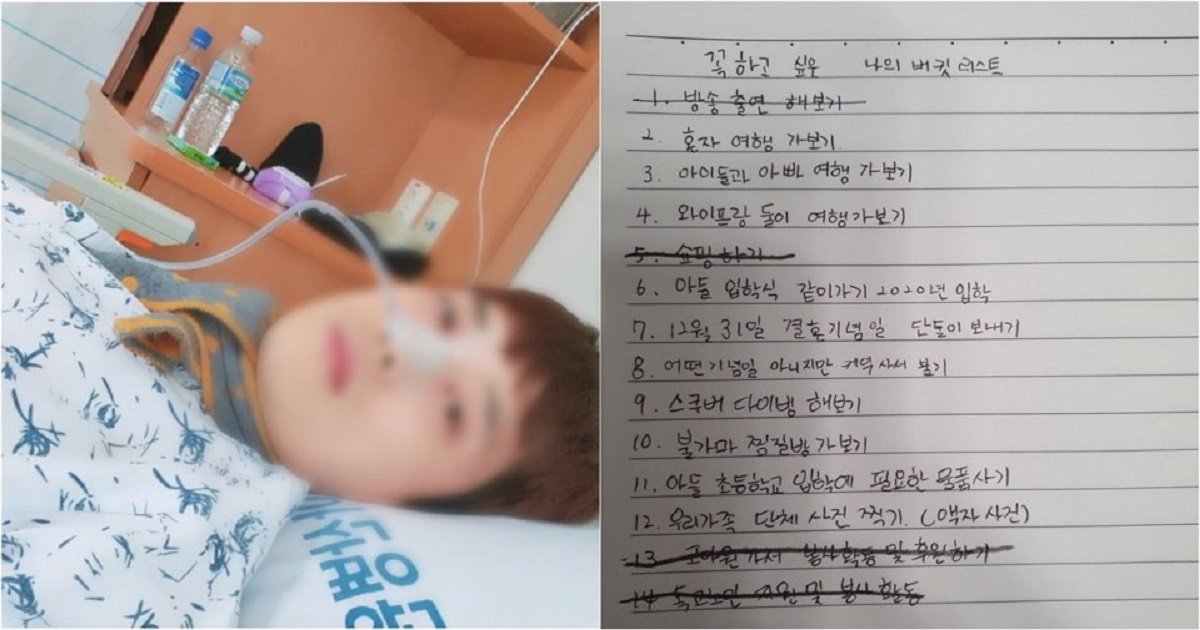 꼭 하고 싶은 나의 버킷리스트
1. 방송 출연 해보기
2. 혼자 여행 가보기
3. 아이들과 아빠 여행 가보기
4. 와이프랑 둘이 여행가보기
5. 쇼핑하기
6. 아들 입학식 같이가기 2020년 입학
7. 12월 31일 결혼기념일 단둘이 보내기
8. 어떤기념일 아니지만 케익사서 불기
9. 스쿠버 다이빙 해보기
10. 불가마 찜질방가보기
11. 아들 초등학교 입학에 필요한 물품사기
12. 우리가족 단체 사진 찍기. (액자사진)
13 고아원가서 봉사활동 및 후원하기
14 독거노인 지원 및 봉사 활동